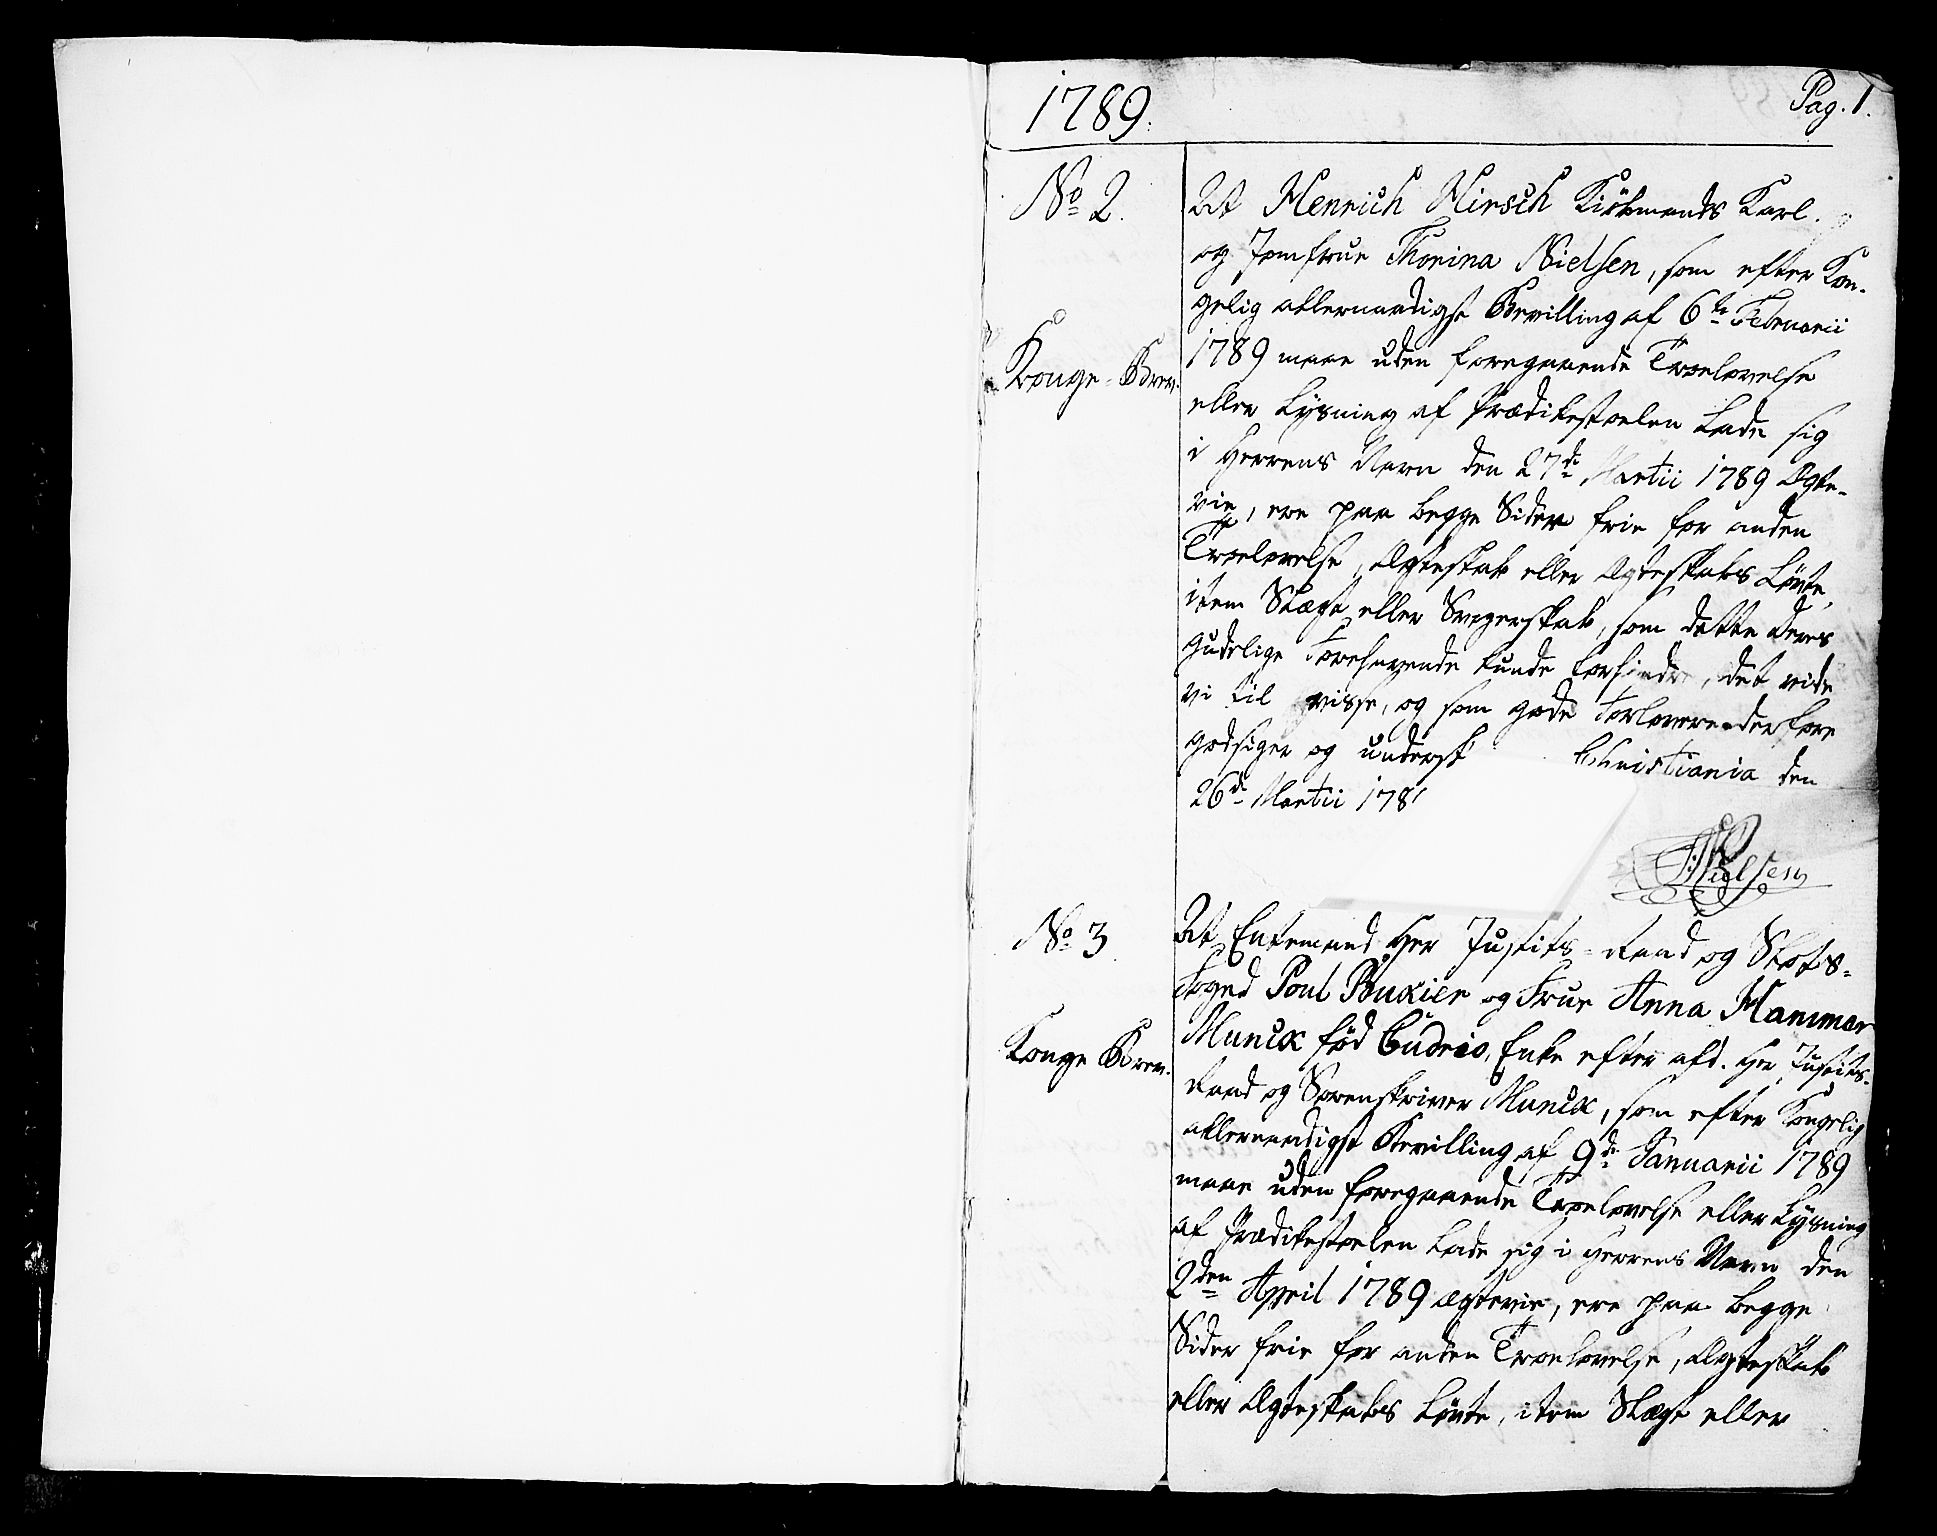 1789.
Pag. 1.
No 2.
Konge-Brev.
At Henrich Hirsch Kiöbmands Karl
og Jomfrue Thorina Nielsen, som efter Kon-
gelig allernaadigst Bevilling af 6te Februarii
1789 maae uden foregaaende Troelovelse
eller Lysning af Prædikestoelen lade sig
i Herrens Navn den 27de Martii 1789 Ægte-
vie, ere paa begge Sider frie for anden
Troelovelse, Ægteskab eller Ægteskabs Løvte,
item Slægt eller Svogerskab, som dette deres
gudelige Forehavende kunde forhindre, det vide
vi til visse, og som gode Forlovere derfore
godsiger og undersk Christiania den
26de Martii 178
Nielsen
No 3.
Konge Brev.
At Enkemand Her Justits-Raad og Slots-
Foged Poul Buxier og Frue Anna Hammer
Munck fød Cudrio, Enke efter afd. Her Justits-
Raad og Sorenskriver Munck, som efter Kongelig
allernaadigst Bevilling af 9de Januarii 1789
maae uden foregaaende Troelovelse eller Lysning
af Prædikestoelen lade sig i Herrens Navn den
2den April 1789 ægtevie, ere paa begge
Sider frie for anden Troelovelse, Ægteskab
eller Ægteskabs Løvte, item Slægt eller